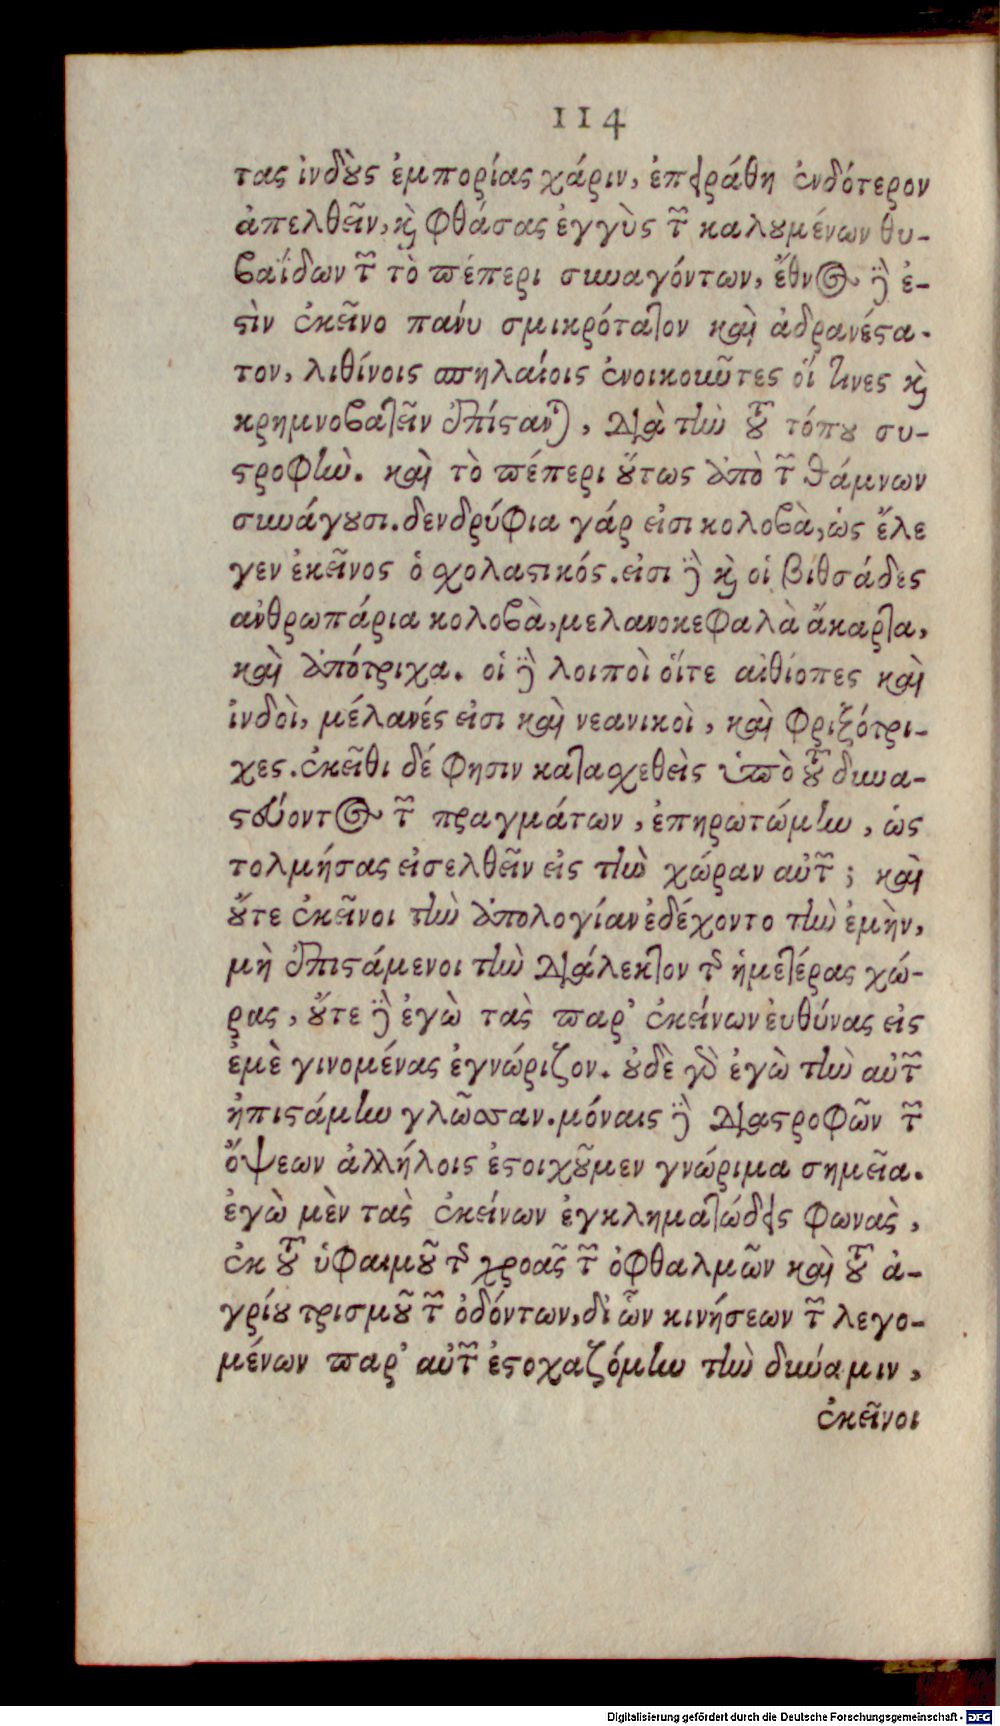 114
τας ἰνδȣ̀ς ἐμπορίας χάριν, ἐπειράθη ἐνδότερον
ἀπελθεῖν, ϗ̀ φθάσας ἐγγὺς τῶν καλȣμένων θυ-
βαΐδων τῶν τὸ πέπερι συναγόντων, ἔθνος δὲ ἐ-
ςὶν ἐκεῖνο πάνυ σμικρότατον καὶ ἀδρανέςα-
τον, λιθίνοις σπηλαίοις ἐνοικοῦντες οἵ τινες ϗ̀
κρημνοβατεῖν ἐπίςανται, διὰ τὴν τοῦ τόπȣ συ-
ςροφήν. καὶ τὸ πέπερι ȣ̔́τως ἀπὸ τῶν θάμνων
συνάγȣσι. δενδρύφια γάρ εἰσι κολοβὰ, ὡς ἔλε
γεν ἐκεῖνος ὁ σχολαςικός. εἰσι δὲ ϗ̀ οἱ βιθσάδες
ἀνθρωπάρια κολοβὰ, μελανοκεφαλὰ ἄκαρτα,
καὶ ἀπότριχα. οἱ δὲ λοιποὶ οἵτε αἰθίοπες καὶ
ἰνδοὶ, μέλανές εἰσι καὶ νεανικοὶ, καὶ φριξότρι-
χες. ἐκεῖθι δέ φησιν κατασχεθεὶς ὑπὸ τοῦ δυνα-
ςεύοντος τῶν πραγμάτων, ἐπηρωτώμην, ὡς
τολμήσας εἰσελθεῖν εἰς τὴν χώραν αὐτῶν; καὶ
ȣ̓́τε ἐκεῖνοι τὴν ἀπολογίαν ἐδέχοντο τὴν ἐμὴν,
μὴ ἐπιςάμενοι τὴν διάλεκτον τῆς ἡμετέρας χώ-
ρας, ȣ̓́τε δὲ ἐγὼ τὰς παρ' ἐκείνων ἐυθύνας εἰς
ἐμὲ γινομένας ἐγνώριζον. ȣ̓δὲ γὰρ ἐγὼ τὴν αὐτῶν
ἠπιςάμην γλῶσσαν. μόναις δὲ διαςροφῶν τῶν
ὄψεων ἀλλήλοις ἐςοιχȣ͂μεν γνώριμα σημεῖα.
ἐγὼ μὲν τὰς ἐκείνων ἐγκληματώδεις φωνὰς,
ἐκ τοῦ ὑφαιμȣ͂ τῆς χροᾶς τῶν ὀφθαλμῶν καὶ τοῦ ἀ-
γρίȣ τρισμȣ͂ τῶν ὀδόντων, δι ὧν κινήσεων τῶν λεγο-
μένων παρ' αὐτῶν ἐςοχαζόμην τὴν δύναμιν,
ἐκεῖνοι
Digitalisierung gefördert durch die Deutsche Forschungsgemeinschaft - DFG